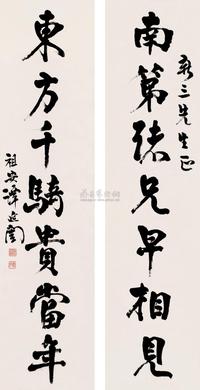 南第諸兄早相見
新三先生正
東方千騎貴當年
祖安譚延闓